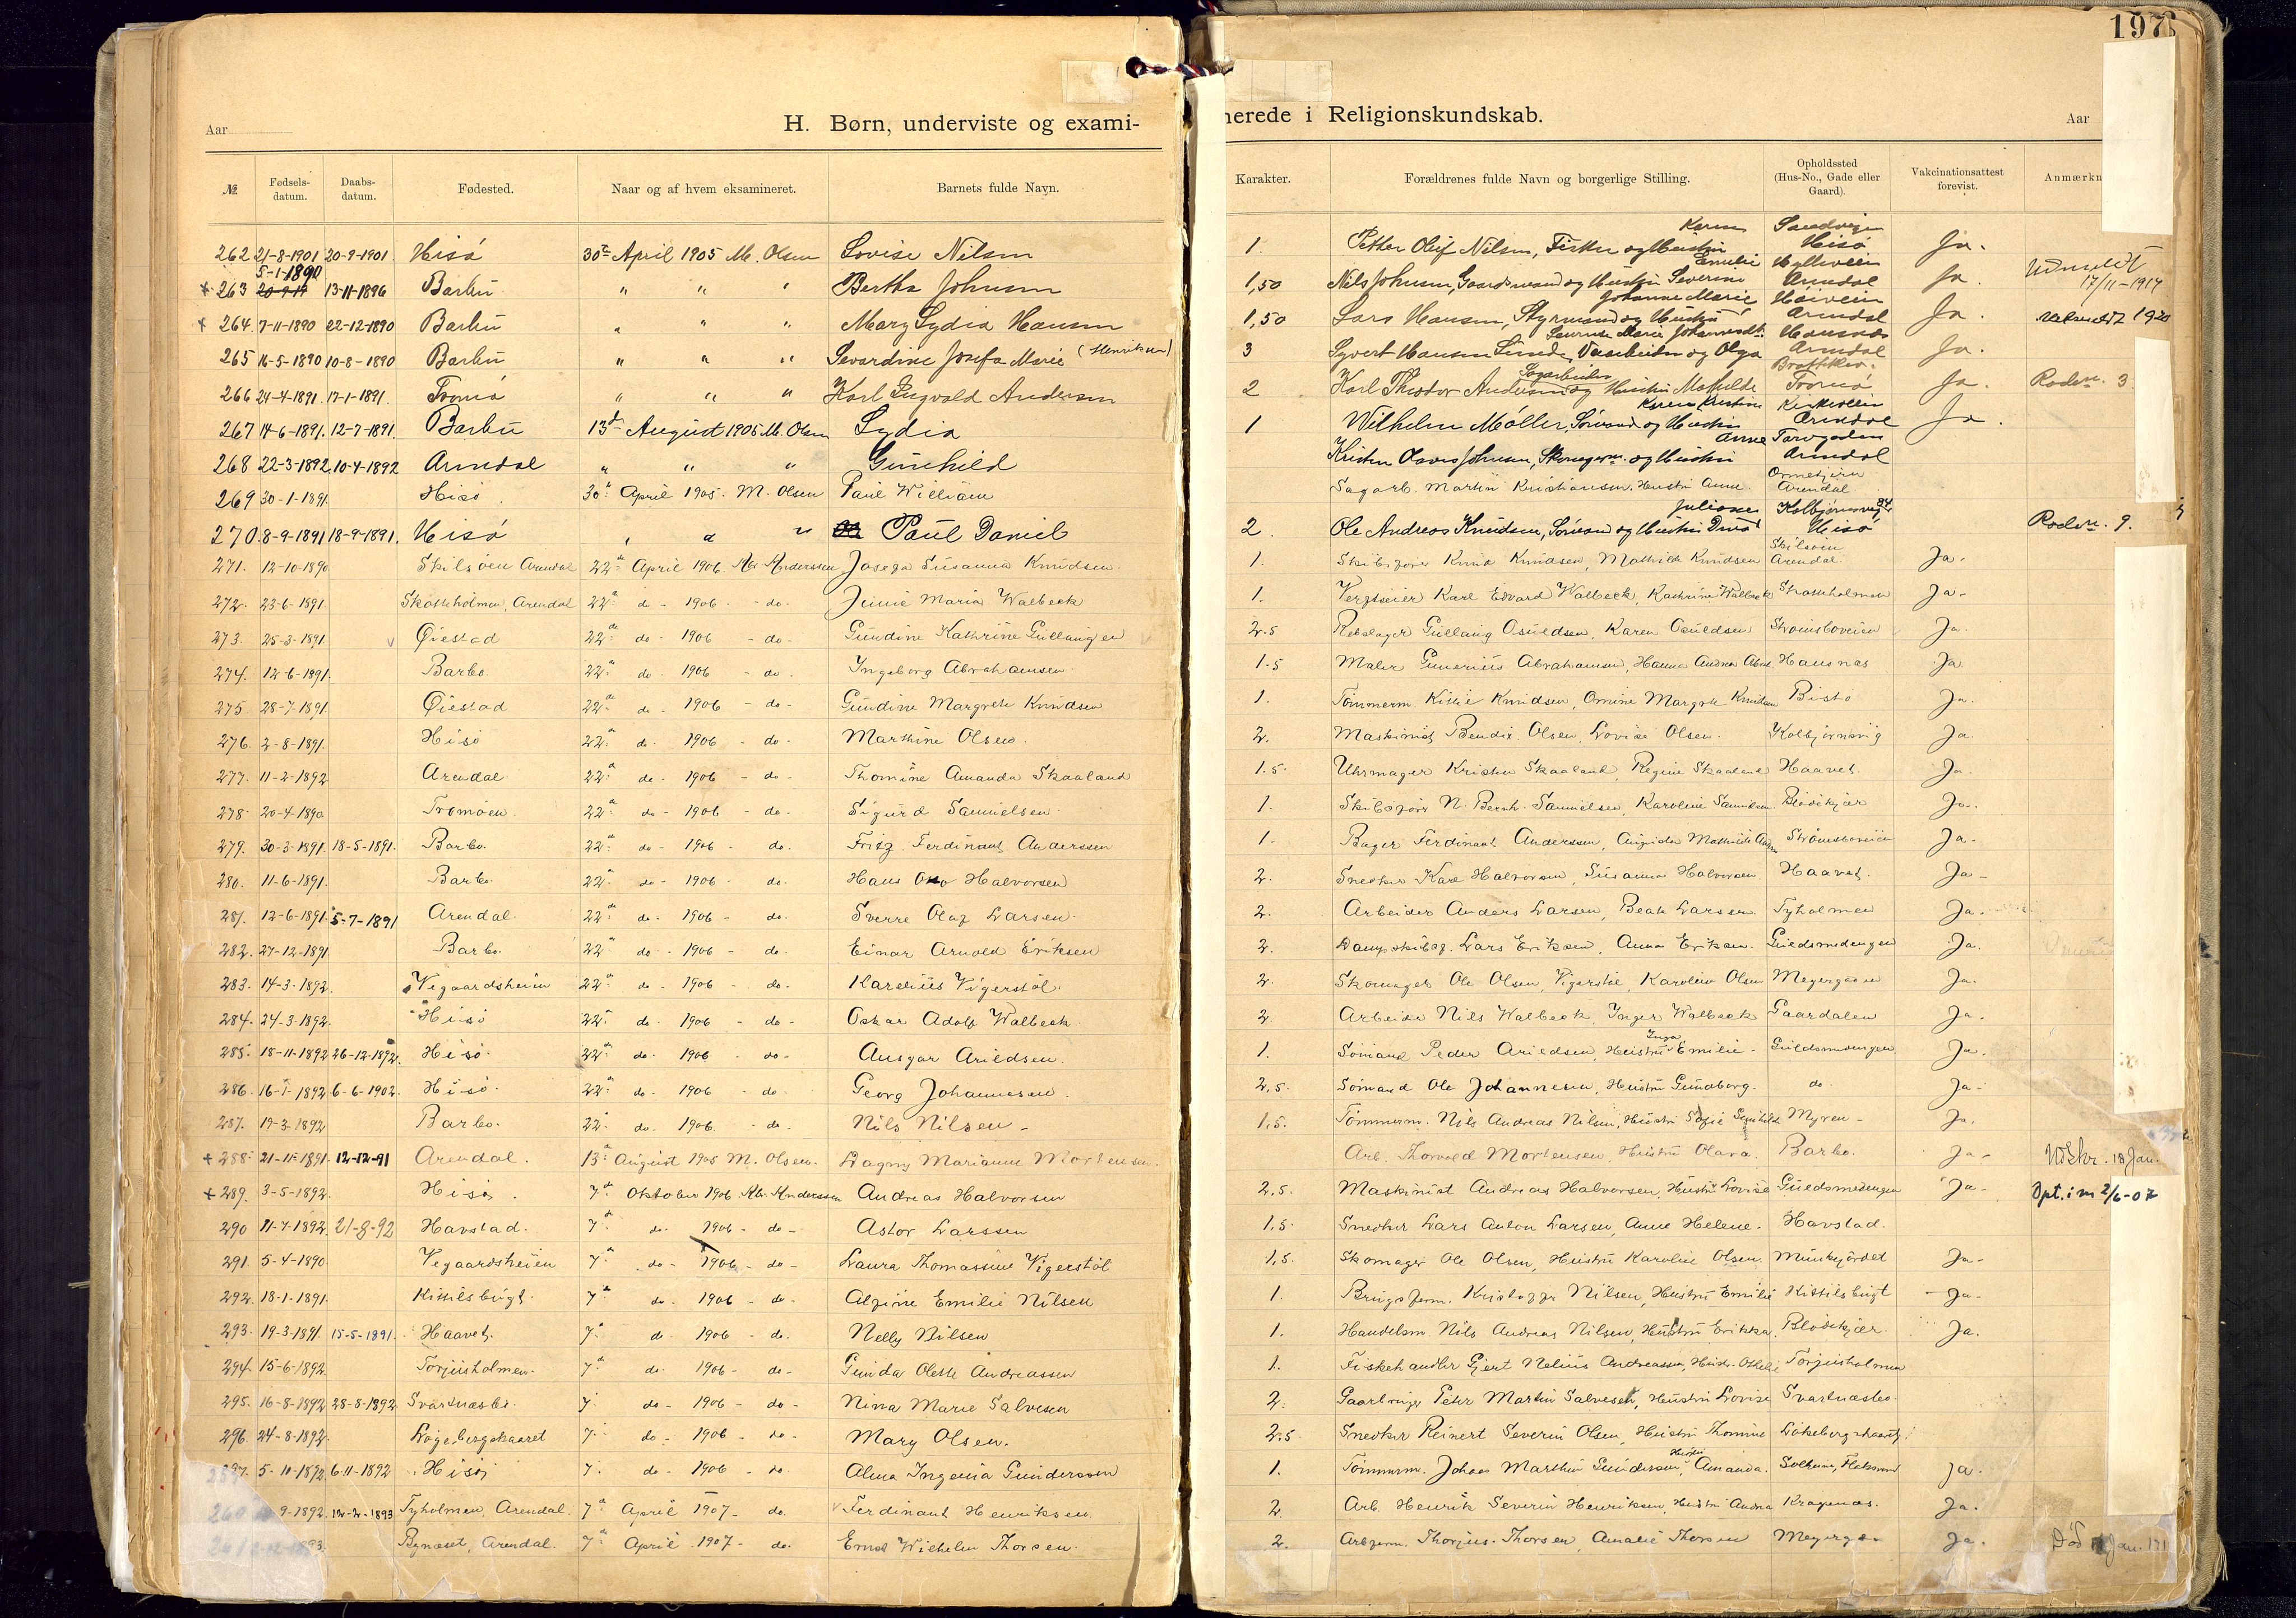 197
Aar
H. Børn, underviste og exami-
nerede i Religionskundskab.
Aar
№ Fødsels-datum. Daabs-datum. Fødested. Naar og af hvem eksamineret. Barnets fulde Navn. Karakter. Forældrenes fulde Navn og borgerlige Stilling. Opholdssted (Hus-No., Gade eller Gaard). Vakcinationsattest forevist. Anmærkn
262 21-8-1901 20-9-1901 Hisø 30te April 1905 M. Olsen Lovise Nilsen 1. Petter Oluf Nilsen, Fisker og Hustru Karen Sandvigen Hisø Ja.
263 5-1-1890 13-11-1896 Barbu " " " Bertha Johnsen 1,50 Nils Johnsen, Gaardsmand og Hustru Severine Emilie Arendal Ja Udmeldt 17/11-1917
264. 7-11-1890 22-12-1890 Barbu " " " Mary Lydia Hansen 1,50 Lars Hansen, Styrmand og Hustru Johanne Marie Høivein Arendal Ja. 1920
265 16-5-1890 10-8-1890 Barbu " " " Sevardine Josefa Marie (Henriksen) 3 Syvert Hansen og Olga Arendal Ja.
266 24-4-1891. 17-1-1891. Tromø " " " Karl Ingvald Andersen 2 Karl Theodor Andersen og Hustru Mathilde Tromø Ja. Roden. 3.
267 14-6-1891. 12-7-1891. Barbu 13de August 1905 M. Olsen Lydia 1 Wilhelm Møller, Sømand og Hustru Karen Kristine Kirkeveien Arendal Ja.
268 22-3-1892 10-4-1892 Arendal " " " Gunhild Kristen Johnsen, og Hustru Anne Torvgaden Arendal
269 30-1-1891. Hisø. 30te April 1905. M. Olsen Paul William Sagarb. Martin Kristiansen. Hustru Anne. Arendal
270. 8-9-1891 18-9-1891. Hisø " " " Paul Daniel 2. Ole Andreas Knudsen, Sømand og Hustru Juliane Kolbjørnsvig Hisø Roden. 9.
271. 12-10-1890 Skilsøen Arendal 22de April 1906. Kr. Anderssen Josefa Susanna Knudsen. 1. Skibsfører Knud Knudsen, Mathilde Knudsen Skilsøen Arendal. Ja.
272. 23-6-1891. Skotteholmen, Arendal 22de do - 1906 - do. Junie Maria Walbeck 1. Karl Edvard Walbeck, Kathrine Walbeck Ja-
273. 25-3-1891. Øiestad 22de do - 1906 - do- Gundine Kathrine Gullaugsen 2.5 Rebslager Gullaug Osuldsen, Karen Osuldsen Strømsboveien Ja.
274. 12-6-1891. Barbo. 22de do. 1906 - do. Ingeborg Abrahamsen. 1-5 Maler Gunerius Abrahamsen, Hanna Andrea Abra. Hausnæs Ja
275. 28-7-1891. Øiestad 22de do - 1906 - do- Gundine Margrete Knudsen 1. Tømmerm. Kittil Knudsen, Omine Margrete Knudsen Bisto Ja.
276. 2-8-1891. Hisø 22de do. 1906 - do- Marthine Olsen. 2. Maskinist Bendix Olsen, Lovise Olsen. Kolbjørnsvig Ja.
277. 11-2-1892 Arendal. 22de do - 1906 - do- Thomine Amanda Skaaland 1.5. Uhrmager Kristen Skaaland, Regine Skaaland Haavet. Ja.
278. 20-4-1890. Tromøen. 22de do - 1906 - do. Sigurd Samuelsen. 1. Skibsfører N. Bernh. Samuelsen, Karoline Samuelsen. Blødekjær Ja.
279. 30-3-1891. 18-5-1891. Barbo. 22de do - 1906 - do. Fritz Ferdinant Anderssen 1- Bager Ferdinant Anderssen, Mathilde Strømsboveien Ja-
280. 11-6-1891. Barbo. 22de do - 1906 - do. Hans Otto Halvorsen 2. Snedker Karl Halvorsen, Susanna Halvorsen. Haavet. Ja-
281. 12-6-1891. 5-7-1891 Arendal. 22de do - 1906 - do. Sverre Olaf Larsen. 2. Arbeider Anders Larsen, Beate Larssen. Tyholmen Ja.
282. 27-12-1891. Barbo. 22de do - 1906 - do. Einar Arnold Eriksen 2. Dampskibsf. Lars Eriksen, Anna Eriksen. Guldsmedengen Ja.
283. 14-3-1892. Vegaardsheien 22de do - 1906 - do- Karelius Vigerstøl. 2. Skomager Ole Olsen, Vigerstøl, Karoline Olsen Meyergaden Ja.
284. 24-3-1892. Hisø 22de do. 1906 - do - Oskar Adolf Walbeck. 2. Arbeider Nils Walbeck, Inger Walbeck Gaardalen Ja.
285. 18-11-1892 26-12-1892. Hisø. 22de do. 1906 - do- Ansgar Arildsen. 1. Sømand Peder Arildsen, Hustru Inga Emilie- Guldsmedengen Ja.
286. 16-1-1892 6-6-1902. Hisø. 22de do. 1906 do. Georg Johannesen. 2,5. Sømand Ole Johannesen, Hustru Gundborg. do. Ja-
287. 17-3-1892 Barbo. 22de do. 1906. - do- Nils Nilsen - 1,5. Tømmerm. Nils Andreas Nilsen, Hustru Sofie Gunhilde Myren- Ja.
288. 21-11-1891. 12-12-91 Arendal. 13de August 1905 M. Olsen. Dagny Marianne Mortensen. Arb. Thorvald Mortensen, Hustru Olava. Barbo. Ja- Udskr. 18 Jan.
289. 3-5-1892. Hisø. 7de Oktober 1906. Kr. Anderssen Andreas Halvorsen 2,5. Maskinist Andreas Halvorsen, Hustru Lovise Guldsmedengen Ja- Opt. i m 2/6-07
290 11-7-1892. 21-8-92 Havstad. 7de do. 1906 - do- Astor Larssen 1,5. Snedker Lars Anton Larsen, Anne Helene. Havstad.
291. 5-4-1890. Vegaardsheien 7de do- 1906 - do- Laura Thomassine Vigerstøl 1,5. Skomager Ole Olsen, Hustru Karoline Olsen. Munkejordet Ja-
292. 18-1-1891. Kittilsbugt. 7de do. 1906 - do- Alfine Emilie Nilsen 1. Brugsform. Kristoffer Nilsen, Hustru Emilie Kittilsbugt Ja-
293. 19-3-1891. 15-5-1891. Haavet. 7de do- 1906 - do. Nelly Nilsen 1. Handelsm. Nils Andreas Nilsen, Hustru Erikka. Blødekjær. Ja.
294. 15-6-1892. Torjusholmen. 7de do. 1906- do- Gunda Olette Andreassen 1. Fiskehandler Gjert Nelius Andreassen, Hustr. Othelie Torjusholmen
295. 16-8-1892 28-8-1892. Svartnæsbo. 7. do- 1906 - do- Nina Marie Salvesen 2. Peter Martin Salvesen, Hustru Lovise Svartnæsbo.
296. 24-8-1892. 7. do- 1906 - do- Mary Olsen. 2.5. Snedker Reinert Severin Olsen, Hustru Thomine
297. 5-10-1892 6-11-1892 Hisø. 7. do- 1906 - do. Alma Ingenia Gundersen 1. Tømmerm. Johan Marthin Gundersen, Hustru Amanda. Ja.
9-1892. 12-2-1893 Tyholmen, Arendal. 7de April 1907- do. Ferdinant Henriksen. 2. Arb. Henrik Severin Henriksen, Hustru Andrea Kragenæs. Ja.
Bynæset, Arendal. 7de April 1907- do. Ernst Wilhelm Thorsen. 2. Arbform. Thorjus Thorsen, Amalie Thorsen Ja. Død Jan. 171